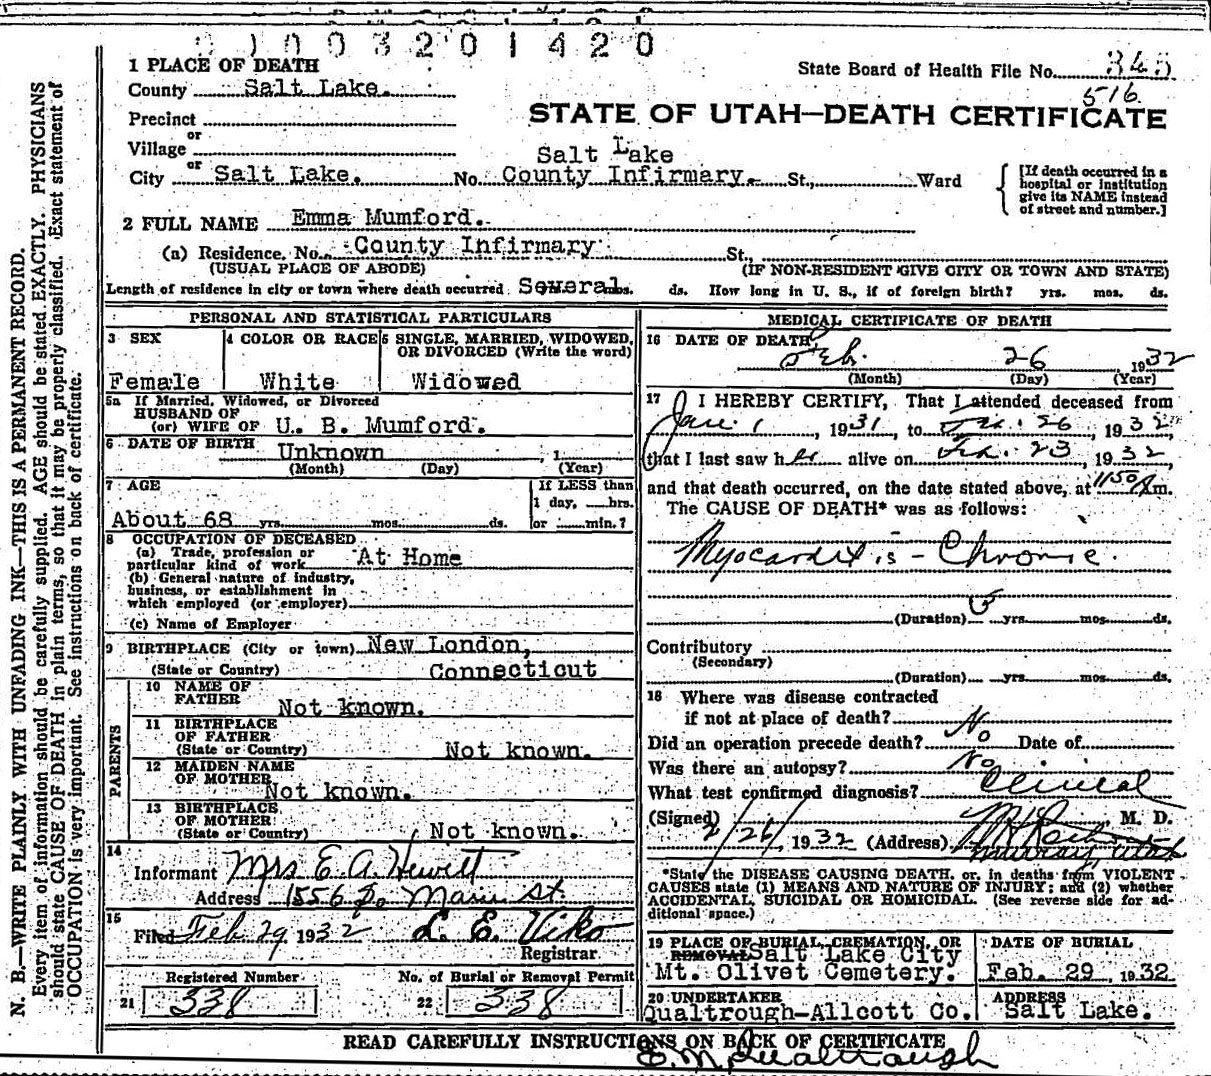 0100320 1420
1 PLACE OF DEATH
State Board of Health File No. 345
County Salt Lake.
516
STATE OF UTAH—DEATH CERTIFICATE
Precinct
or
Village
Salt Lake
or
City Salt Lake. No. County Infirmary. St., Ward
[If death occurred in a
hospital or institution
give its NAME instead
of street and number.]
2 FULL NAME Emma Mumford.
(a) Residence, No. County Infirmary St.,
(USUAL PLACE OF ABODE) (IF NON-RESIDENT GIVE CITY OR TOWN AND STATE)
Length of residence in city or town where death occurred Several mos. ds. How long in U. S., if of foreign birth? yrs. mos. ds.
PERSONAL AND STATISTICAL PARTICULARS
3 SEX 4 COLOR OR RACE 5 SINGLE, MARRIED, WIDOWED,
OR DIVORCED (Write the word)
Female White Widowed
5a If Married, Widowed, or Divorced
HUSBAND OF
(or) WIFE OF U. B. Mumford.
6 DATE OF BIRTH Unknown , 1
(Month) (Day) (Year)
7 AGE If LESS than
1 day, hrs.
About 68 yrs. mos. ds. or min.?
8 OCCUPATION OF DECEASED
(a) Trade, profession or
particular kind of work At Home
(b) General nature of industry,
business, or establishment in
which employed (or employer)
(c) Name of Employer
9 BIRTHPLACE (City or town) New London,
(State or Country) Connecticut
PARENTS
10 NAME OF
FATHER Not known.
11 BIRTHPLACE
OF FATHER
(State or Country) Not known.
12 MAIDEN NAME
OF MOTHER
Not known.
13 BIRTHPLACE
OF MOTHER
(State or Country) Not known.
14
Informant Mrs E. A. Hewett
Address 1556 So Main St.
15
Filed Feb 29 1932 L. E. Viko
Registrar
Registered Number No. of Burial or Removal Permit
21 338 22 338
MEDICAL CERTIFICATE OF DEATH
16 DATE OF DEATH
Feb. 26 1932
(Month) (Day) (Year)
17 I HEREBY CERTIFY, That I attended deceased from
Jan. 1, 1931, to Feb. 26, 1932
that I last saw her alive on Feb. 23, 1932
and that death occurred, on the date stated above, at 1150 A m.
The CAUSE OF DEATH* was as follows:
Myocarditis - Chronic.
(Duration) 5 yrs. mos. ds.
Contributory
(Secondary)
(Duration) yrs. mos. ds.
18 Where was disease contracted
if not at place of death?
Did an operation precede death? No Date of
Was there an autopsy? No
What test confirmed diagnosis? Clinical
(Signed) , M. D.
2/26, 1932 (Address) Murray, Utah
*State the DISEASE CAUSING DEATH, or, in deaths from VIOLENT
CAUSES state (1) MEANS AND NATURE OF INJURY; and (2) whether
ACCIDENTAL, SUICIDAL OR HOMICIDAL. (See reverse side for ad-
ditional space.)
19 PLACE OF BURIAL, CREMATION, OR
REMOVAL Salt Lake City
Mt. Olivet Cemetery.
DATE OF BURIAL
Feb. 29, 1932
20 UNDERTAKER
Qualtrough-Allcott Co.
ADDRESS
Salt Lake.
READ CAREFULLY INSTRUCTIONS ON BACK OF CERTIFICATE
E. M. Qualtrough
N. B.—WRITE PLAINLY WITH UNFADING INK—THIS IS A PERMANENT RECORD.
Every item of information should be carefully supplied. AGE should be stated EXACTLY. PHYSICIANS
should state CAUSE OF DEATH in plain terms, so that it may be properly classified. Exact statement of
OCCUPATION is very important. See instructions on back of certificate.